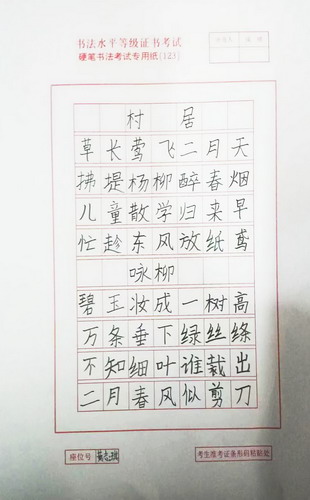 书法水平等级证书考试
硬笔书法考试专用纸(123)
村居
草长莺飞二月天
拂提杨柳醉春烟
儿童散学归来早
忙趁东风放纸鸢
咏柳
碧玉妆成一树高
万条垂下绿丝绦
不知细叶谁裁出
二月春风似剪刀
座位号
考生准考证条形码粘贴处